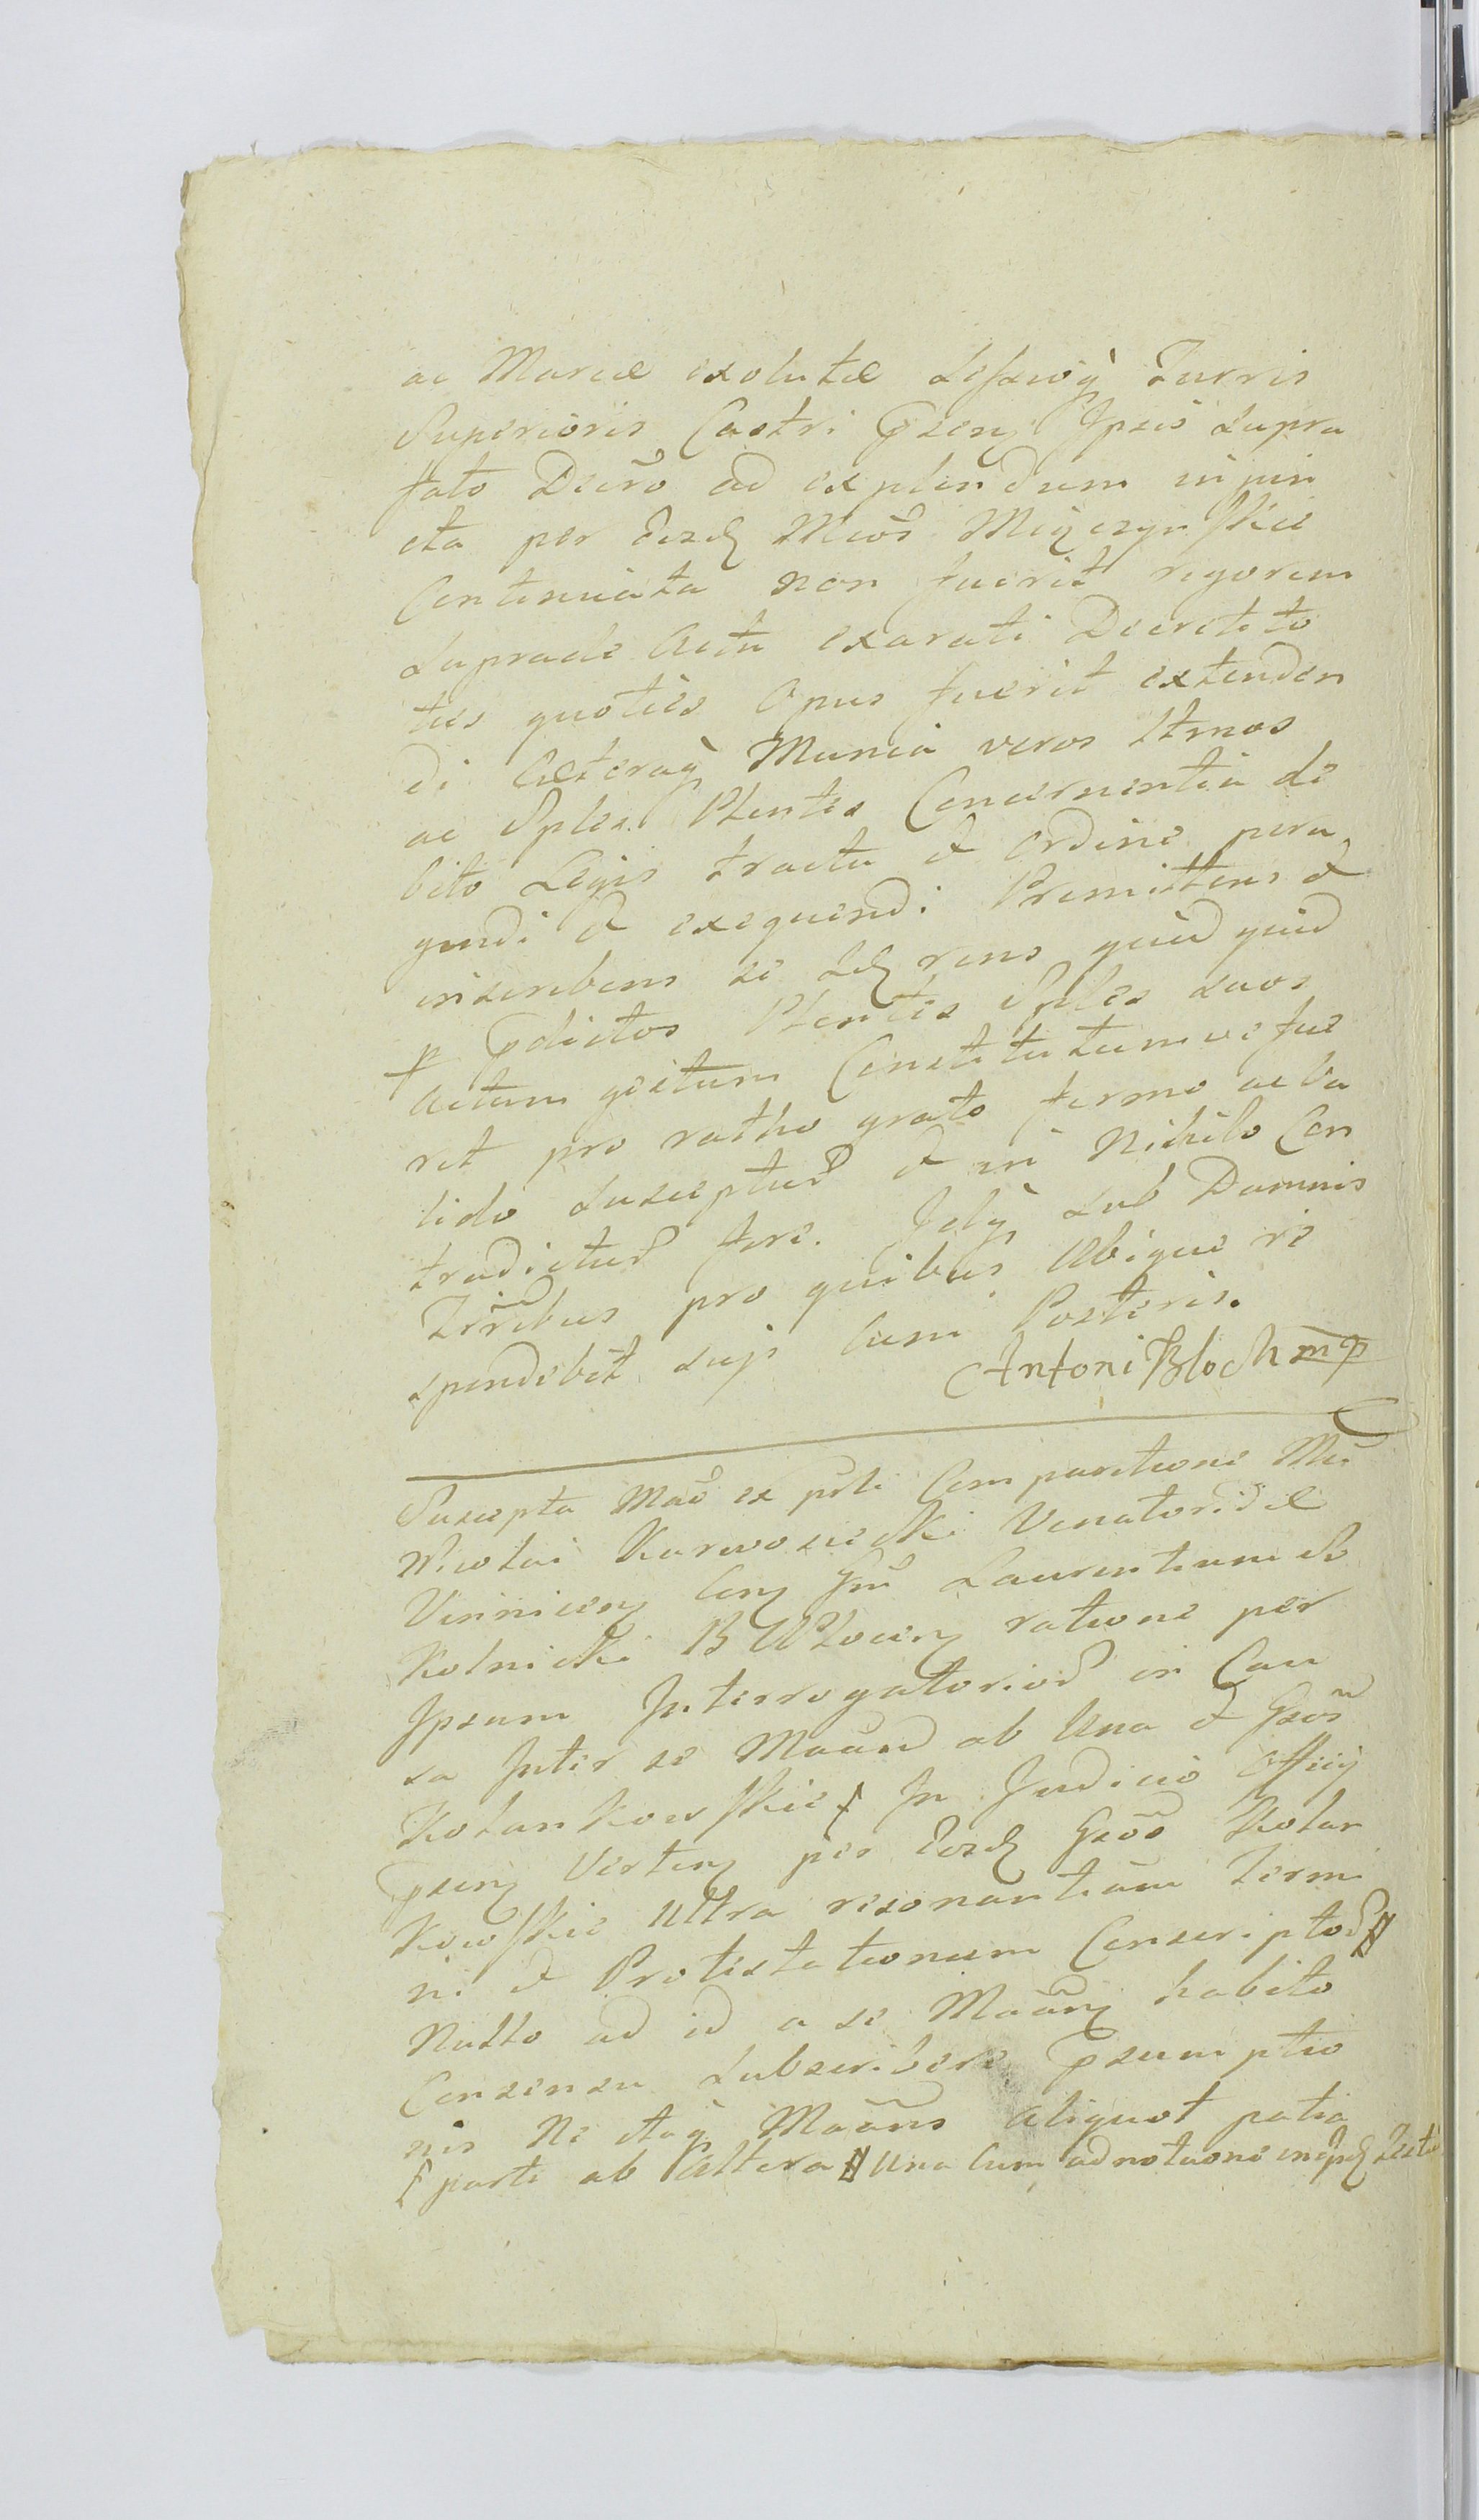 ac Marcæ exolutæ sessioq̀ Turris
Superioris Castri Gdzen Ipsis supra
fato Decrō ad explendum injun
cta per eosd Mcōs Miączynskie
Continuata non fuerit rigorem
supra de Actu exarati Decreti to
ties quoties opus fuerit extenden
di Cæteraq̀ Munia veros Ltimos
ac Sples Plentes Concernentia de
bito Legis tractu & ordine pera
gendi & exequendi Promittens &
inscribens se sed rens quid quid
p pdictos Plentes Sples suos
Actum gestum Constitutumve fue
rit pro ratho grato firmo ac va
lido suscepturū & in Nihilo Con
tradicturū fore. Idq̀ sub Damnis
Trrībus pro quibus Ubique re
spondebit suji cum Posteris.
Antoni Bloch mp
Suscepta Maō ex pṙti Comparitione Mci
Nicolai Karwosiecki Venatoridæ
Vinnicen Con Gnū Laurentium de
Kolnicki B Włocen ratione per
Ipsum Interrogatoriorū in Cau
sa Inter se Maanū ab Una & Gsos
Kolankowskie ⌠ In Judicio Officij
psenj Verten per eosd Gsōs Kolan
kowskie Ultra resonantiam Termi
ni & Protestationum Conscriptorū #
Nullo ad id a se Maan habito
Consensu subscribere psumptio
nis Ne itaq̀ Maāns aliquot patia
⌠ parte ab Altera # Una Cum adnotaone in ipsis